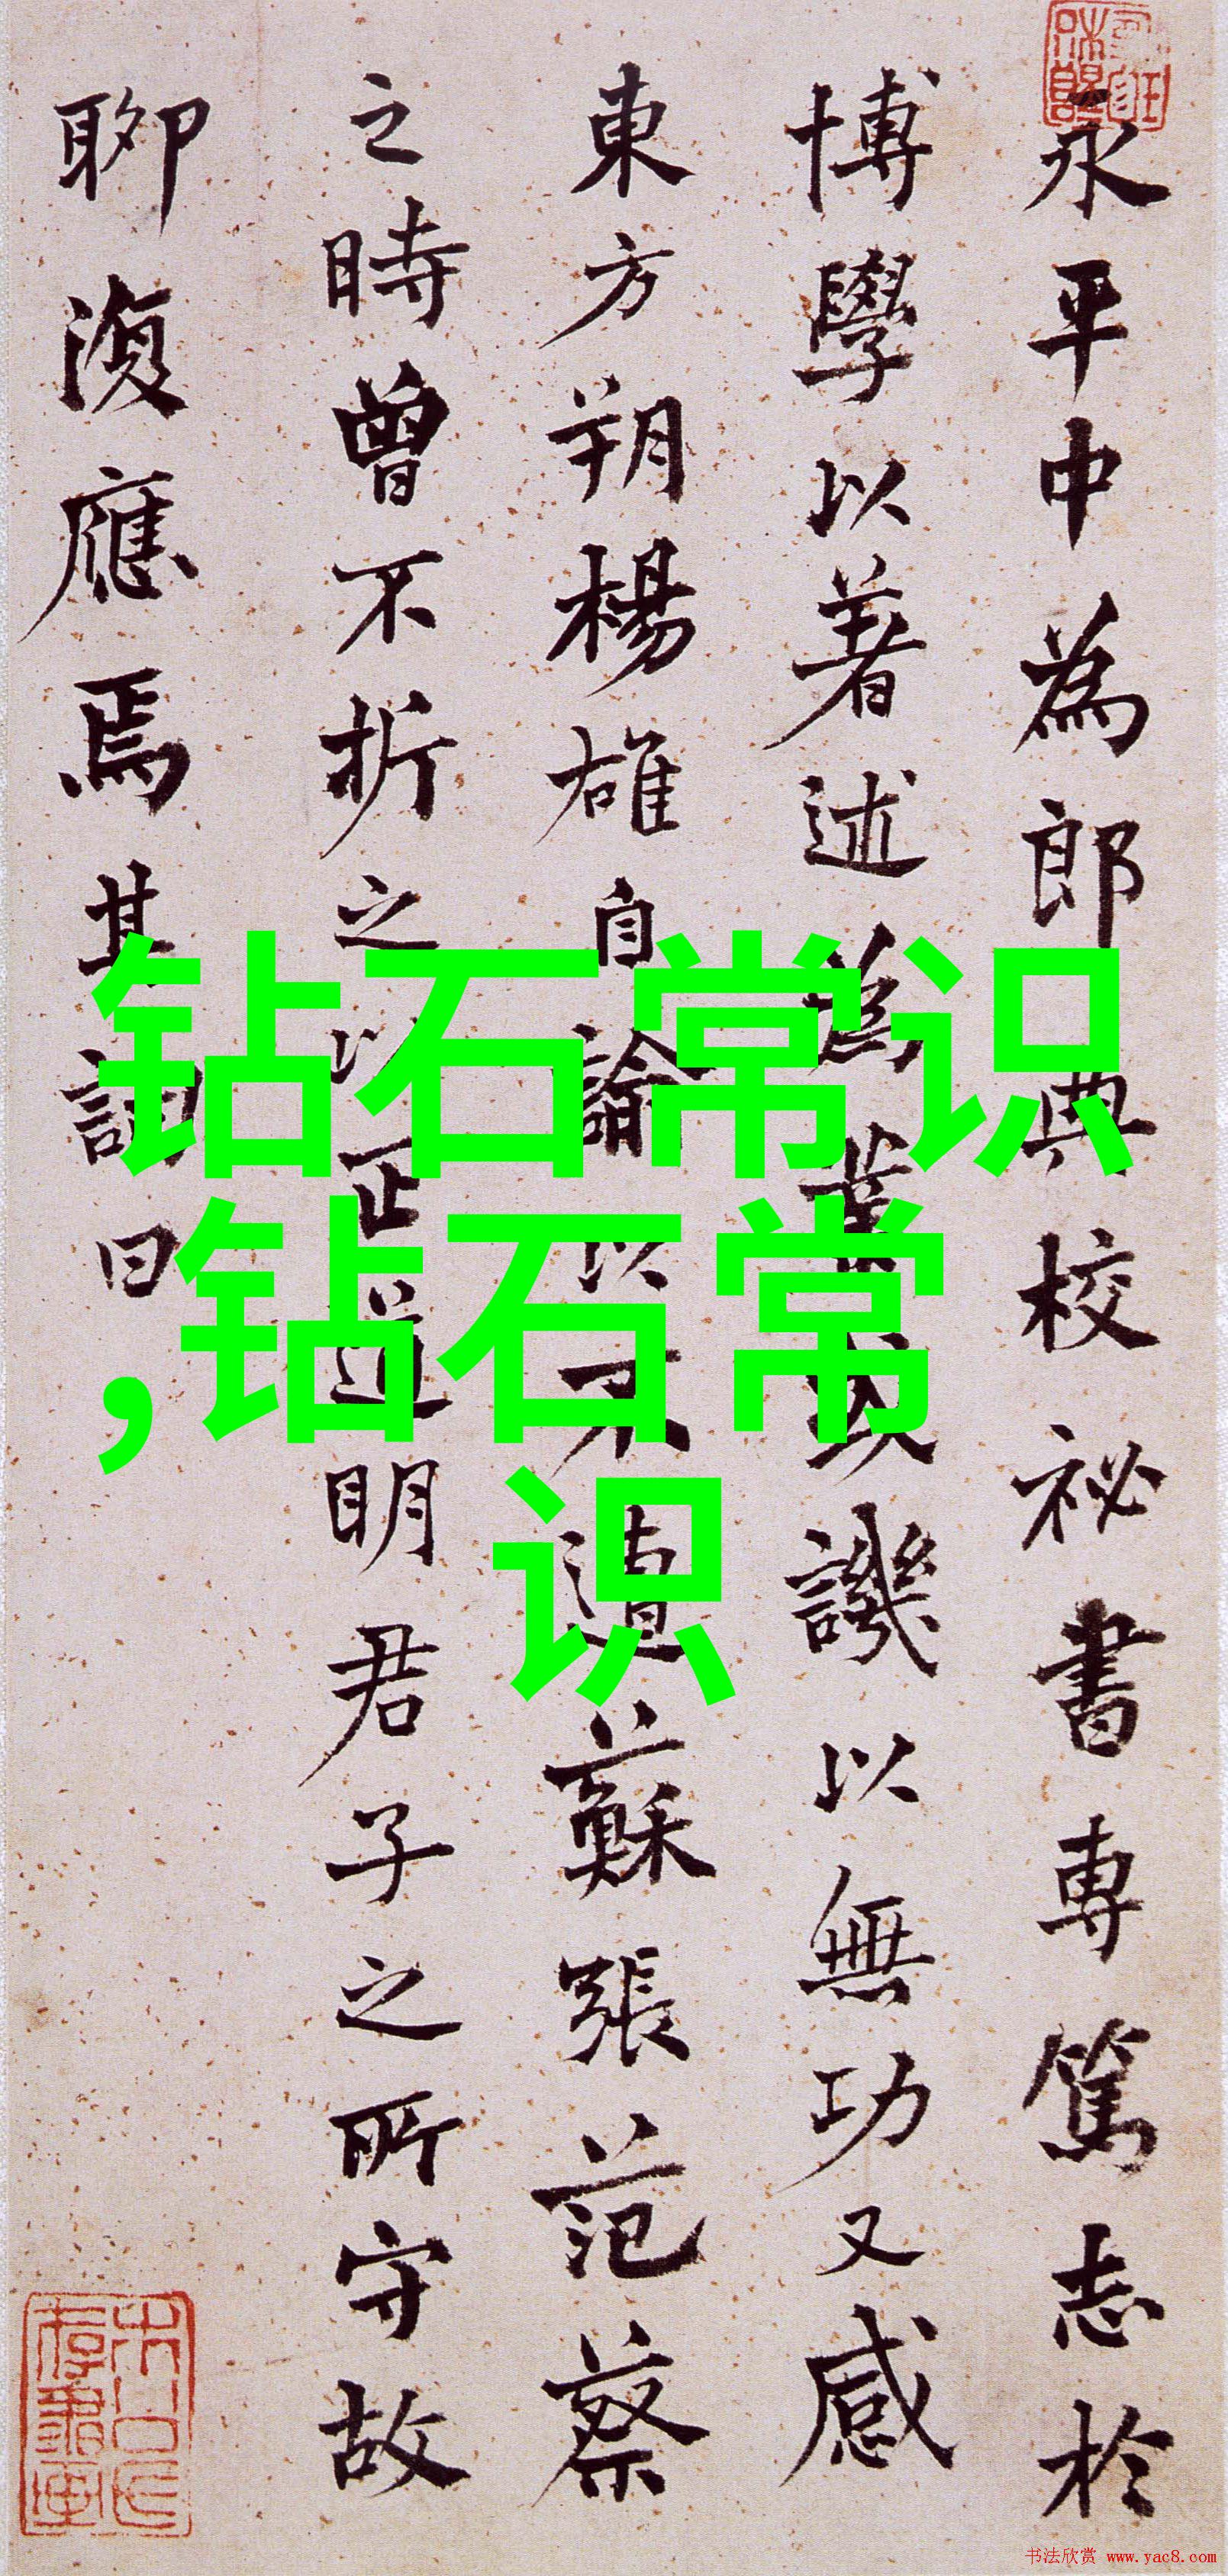 永平中為郎典校祕書專篤志於
博學以著述為業或譏以無功又感
東方朔楊雄自論以不遭蘇張范蔡
之時曾不折之以正道明君子之所守故
聊復應焉其詞曰
钻石常识
,钻石常
识
书法欣赏 www.yac8.com